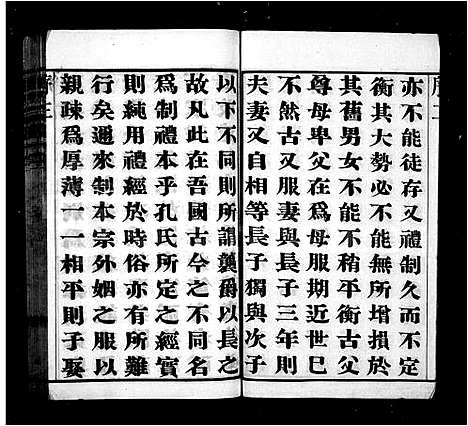 亦不能徒存又禮制久而不定
衡其大勢必不能無所增損於
其舊男女不稍平衡古父
尊母卑父在爲母服期近世巳
不然古又服妻與長子三年則
夫妻又自相等長子獨與次子
以下不同則所謂襲爵以長之
故凡此在吾國古今之不同名
爲制禮本乎孔氏所定之經實
則純用禮經於時俗亦有所難
行矣邇來制本宗外姻之服以
親疎爲厚薄一一相平則子娶
序三